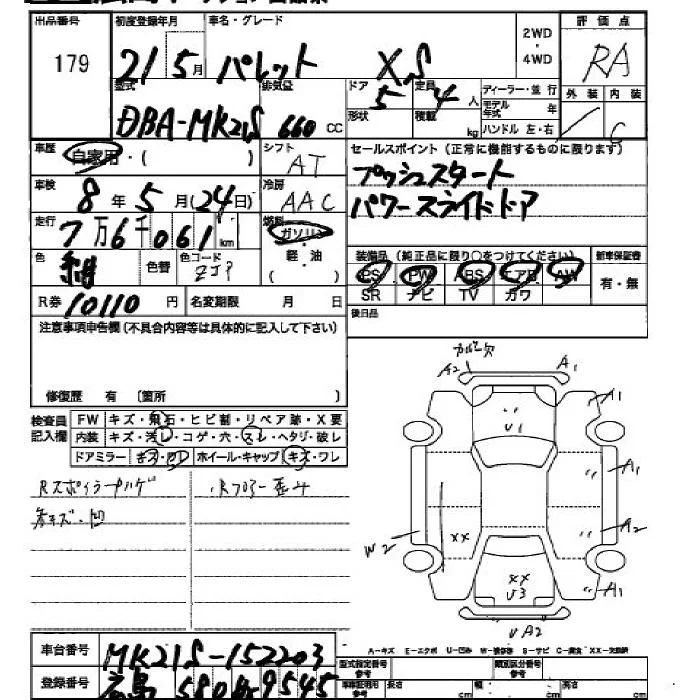 出品番号 初度登録年月 車名・グレード 2WD・4WD 評価点
179 21 5月 パレット XS RA
型式 排気量 ドア 定員 ディーラー・並行 外装 内装
DBA-MK21S 660 CC 5 4人 モデル年式 年 / C
形状 積載 kg ハンドル 左・右
車歴 自家用・( ) シフト AT
セールスポイント(正常に機能するものに限ります)
プッシュスタート
パワースライドドア
車検 8年5月(24日) 冷房 AAC
走行 7万6千061km 燃料 ガソリン 軽・油 ( )
色 色替 色コード ZJP
装備品(純正品に限り○をつけてください) 新車保証書
PS PW ABS エアB AW 有・無
SR ナビ TV カワ
R券 10110円 名変期限 月 日
後日品
注意事項申告欄(不具合内容等は具体的に記入して下さい)
修復歴 有 〔箇所 〕
検査員記入欄 FW キズ・飛石・ヒビ割・リペア跡・X要
内装 キズ・汚レ・コゲ・穴・スレ・ヘタリ・破レ
ドアミラー キズ・ワレ ホイール・キャップ キズ・ワレ
Rスポイラーハゲ
各キズ・凹
A2 A1
U1 A1
A1
XX A2
W2
XX A1
U3
UA2
A-キズ E-エクボ U-凹み W-補修跡 S-サビ C-腐食 XX-交換済
車台番号 MK21S-152203
登録番号 広島 580 9545
型式指定番号 参考 類別区分番号 参考
長さ cm 幅 cm 高さ cm